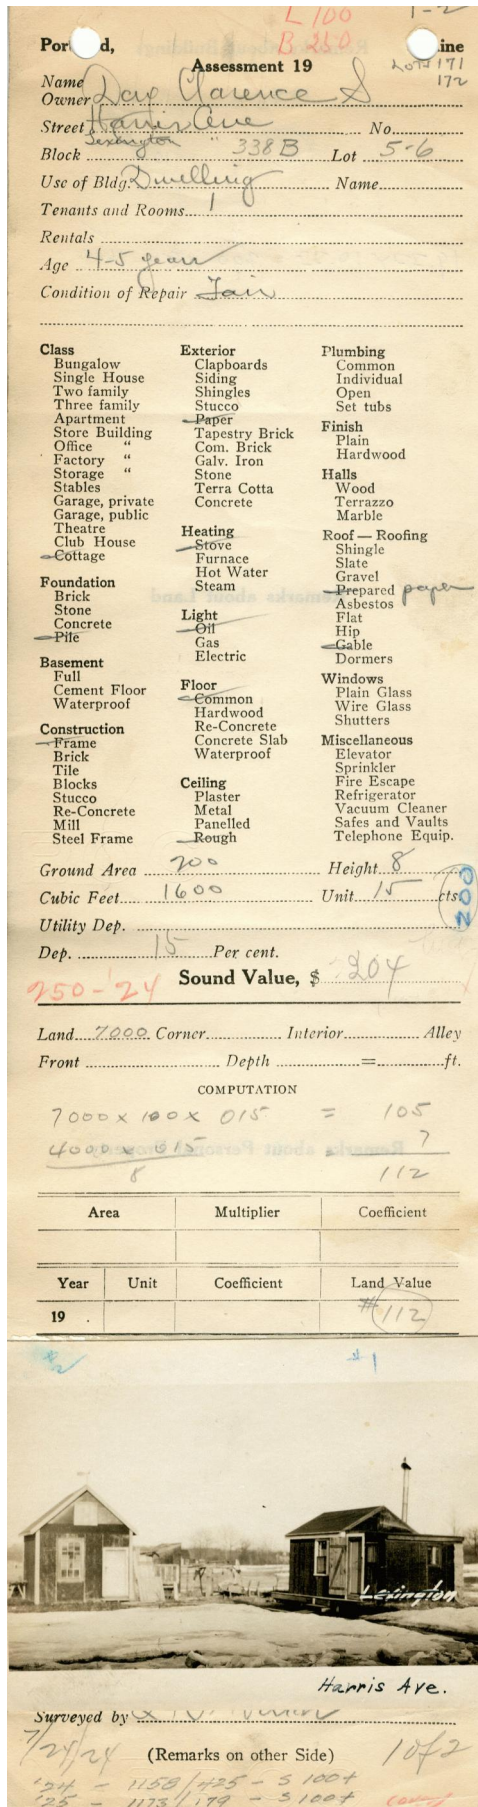 L 100
1-2
B 250
Portland, Maine
Assessment 19
Lots 171
172
Name
Owner Day Clarence S
Street Harris Ave No.
Lexington "
Block 338 B Lot 5-6
Use of Bldg. Dwelling Name
Tenants and Rooms 1
Rentals
Age 4-5 years
Condition of Repair Fair
Class
Bungalow
Single House
Two family
Three family
Apartment
Store Building
Office "
Factory "
Storage "
Stables
Garage, private
Garage, public
Theatre
Club House
Cottage
Foundation
Brick
Stone
Concrete
Pile
Basement
Full
Cement Floor
Waterproof
Construction
Frame
Brick
Tile
Blocks
Stucco
Re-Concrete
Mill
Steel Frame
Exterior
Clapboards
Siding
Shingles
Stucco
Paper
Tapestry Brick
Com. Brick
Galv. Iron
Stone
Terra Cotta
Concrete
Heating
Stove
Furnace
Hot Water
Steam
Light
Oil
Gas
Electric
Floor
Common
Hardwood
Re-Concrete
Concrete Slab
Waterproof
Ceiling
Plaster
Metal
Panelled
Rough
Plumbing
Common
Individual
Open
Set tubs
Finish
Plain
Hardwood
Halls
Wood
Terrazzo
Marble
Roof — Roofing
Shingle
Slate
Gravel
Prepared paper
Asbestos
Flat
Hip
Gable
Dormers
Windows
Plain Glass
Wire Glass
Shutters
Miscellaneous
Elevator
Sprinkler
Fire Escape
Refrigerator
Vacuum Cleaner
Safes and Vaults
Telephone Equip.
Ground Area 200 Height 8
Cubic Feet 1600 Unit 15 cts.
200
Utility Dep.
Dep. 15 Per cent.
Sound Value, $ 204
250-'24
Land 7000 Corner Interior Alley
Front Depth = ft.
COMPUTATION
7000 x 100 x 015 = 105
4000 x 015 = 7
8 112
Area Multiplier Coefficient
Year Unit Coefficient Land Value
19 . #112
#2 #1
Lexington
Harris Ave.
Surveyed by
7/24/24
(Remarks on other Side) 1 of 2
'24 - 1158/425 - $100+
'25 - 1173/179 - $100+